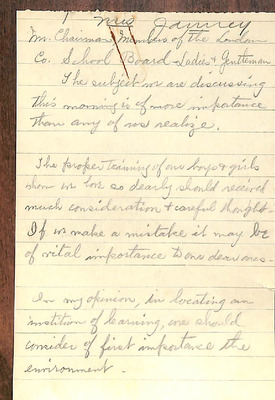 1 Miss Janney
Mr. Chairman, Members of the Loudon
Co. School Board Ladies & Gentlemen
The subject we are discussing
this morning is of more importance
than any of us realize.
The proper training of our boys & girls
whom we love so dearly should received
much consideration & careful thought.
If we make a mistake it may be
of vital importance to our dear ones.
In my opinion, in locating an
institution of learning, one should
consider of first importance the
environment.